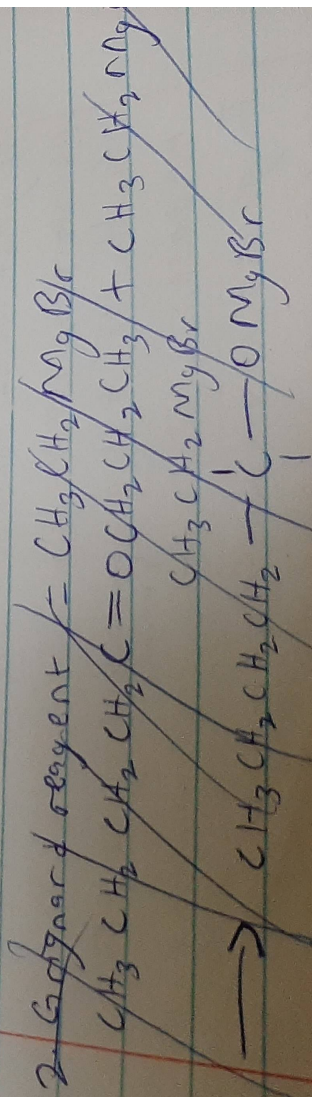 2. Grignard reagent = CH3CH2MgBr
CH3CH2CH2CH2C=OCH2CH2CH3 + CH3CH2MMg
CH3CH2MgBr
→ CH3CH2CH2CH2-C-OMgBr